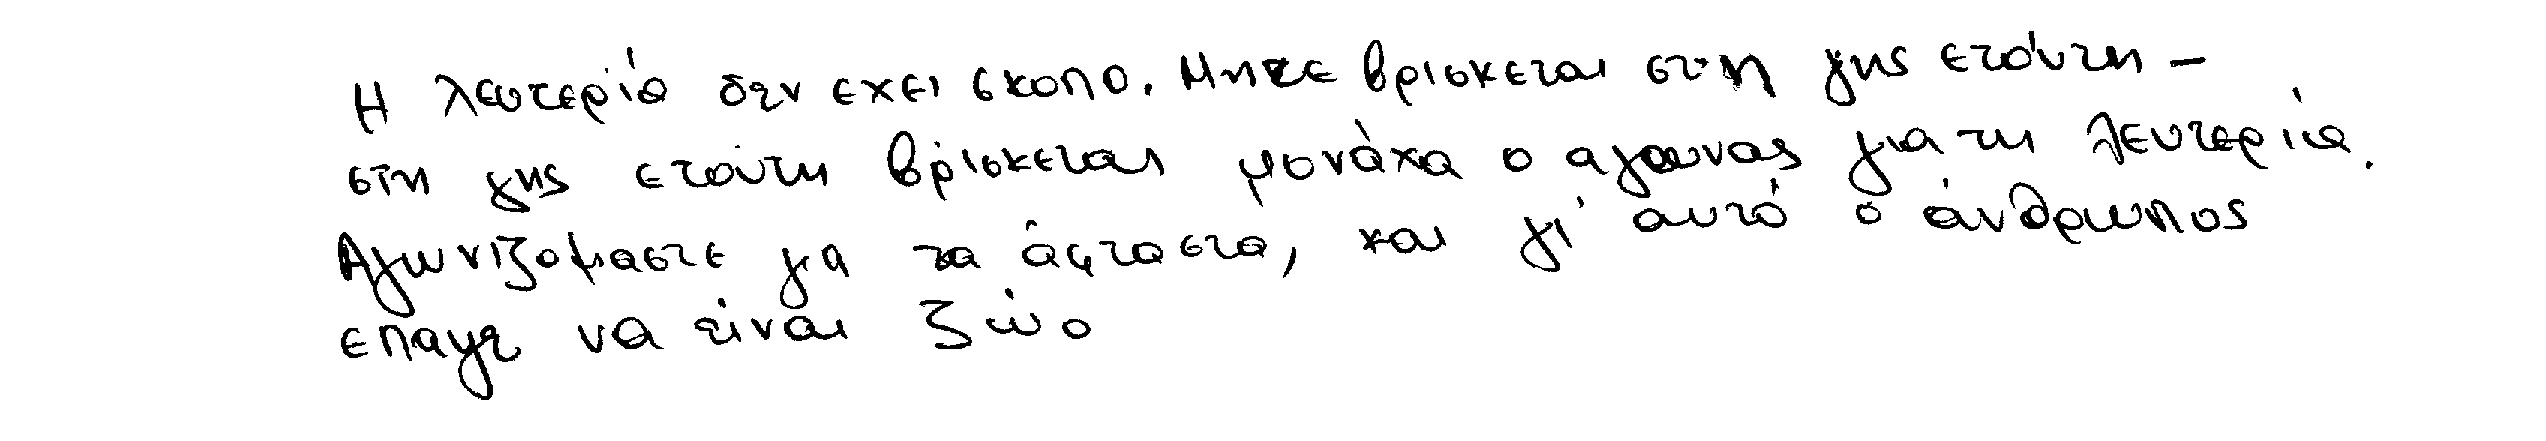 Η λευτεριά δεν εχει σκοπο. Μητε βρισκεται στη γης ετούτη –
στη γης ετούτη βρίσκεται μονάχα ο αγωνας για τη λευτεριά.
Αγωνιζομαστε για τα άφταστα, και γι' αυτό ο άνθρωπος
επαψε να είναι ζώο